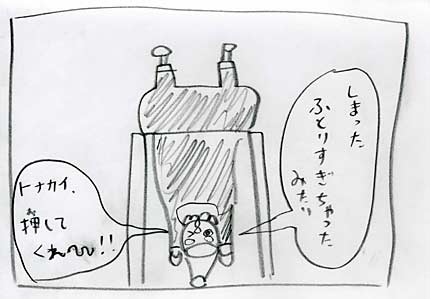 しまった
ふとりすぎちゃった
みたい
トナカイ、
押して
くれ〜〜!!